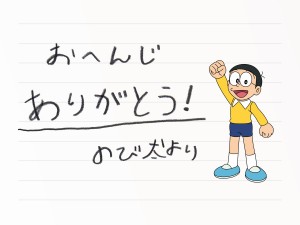 おへんじ
ありがとう!
のび太より